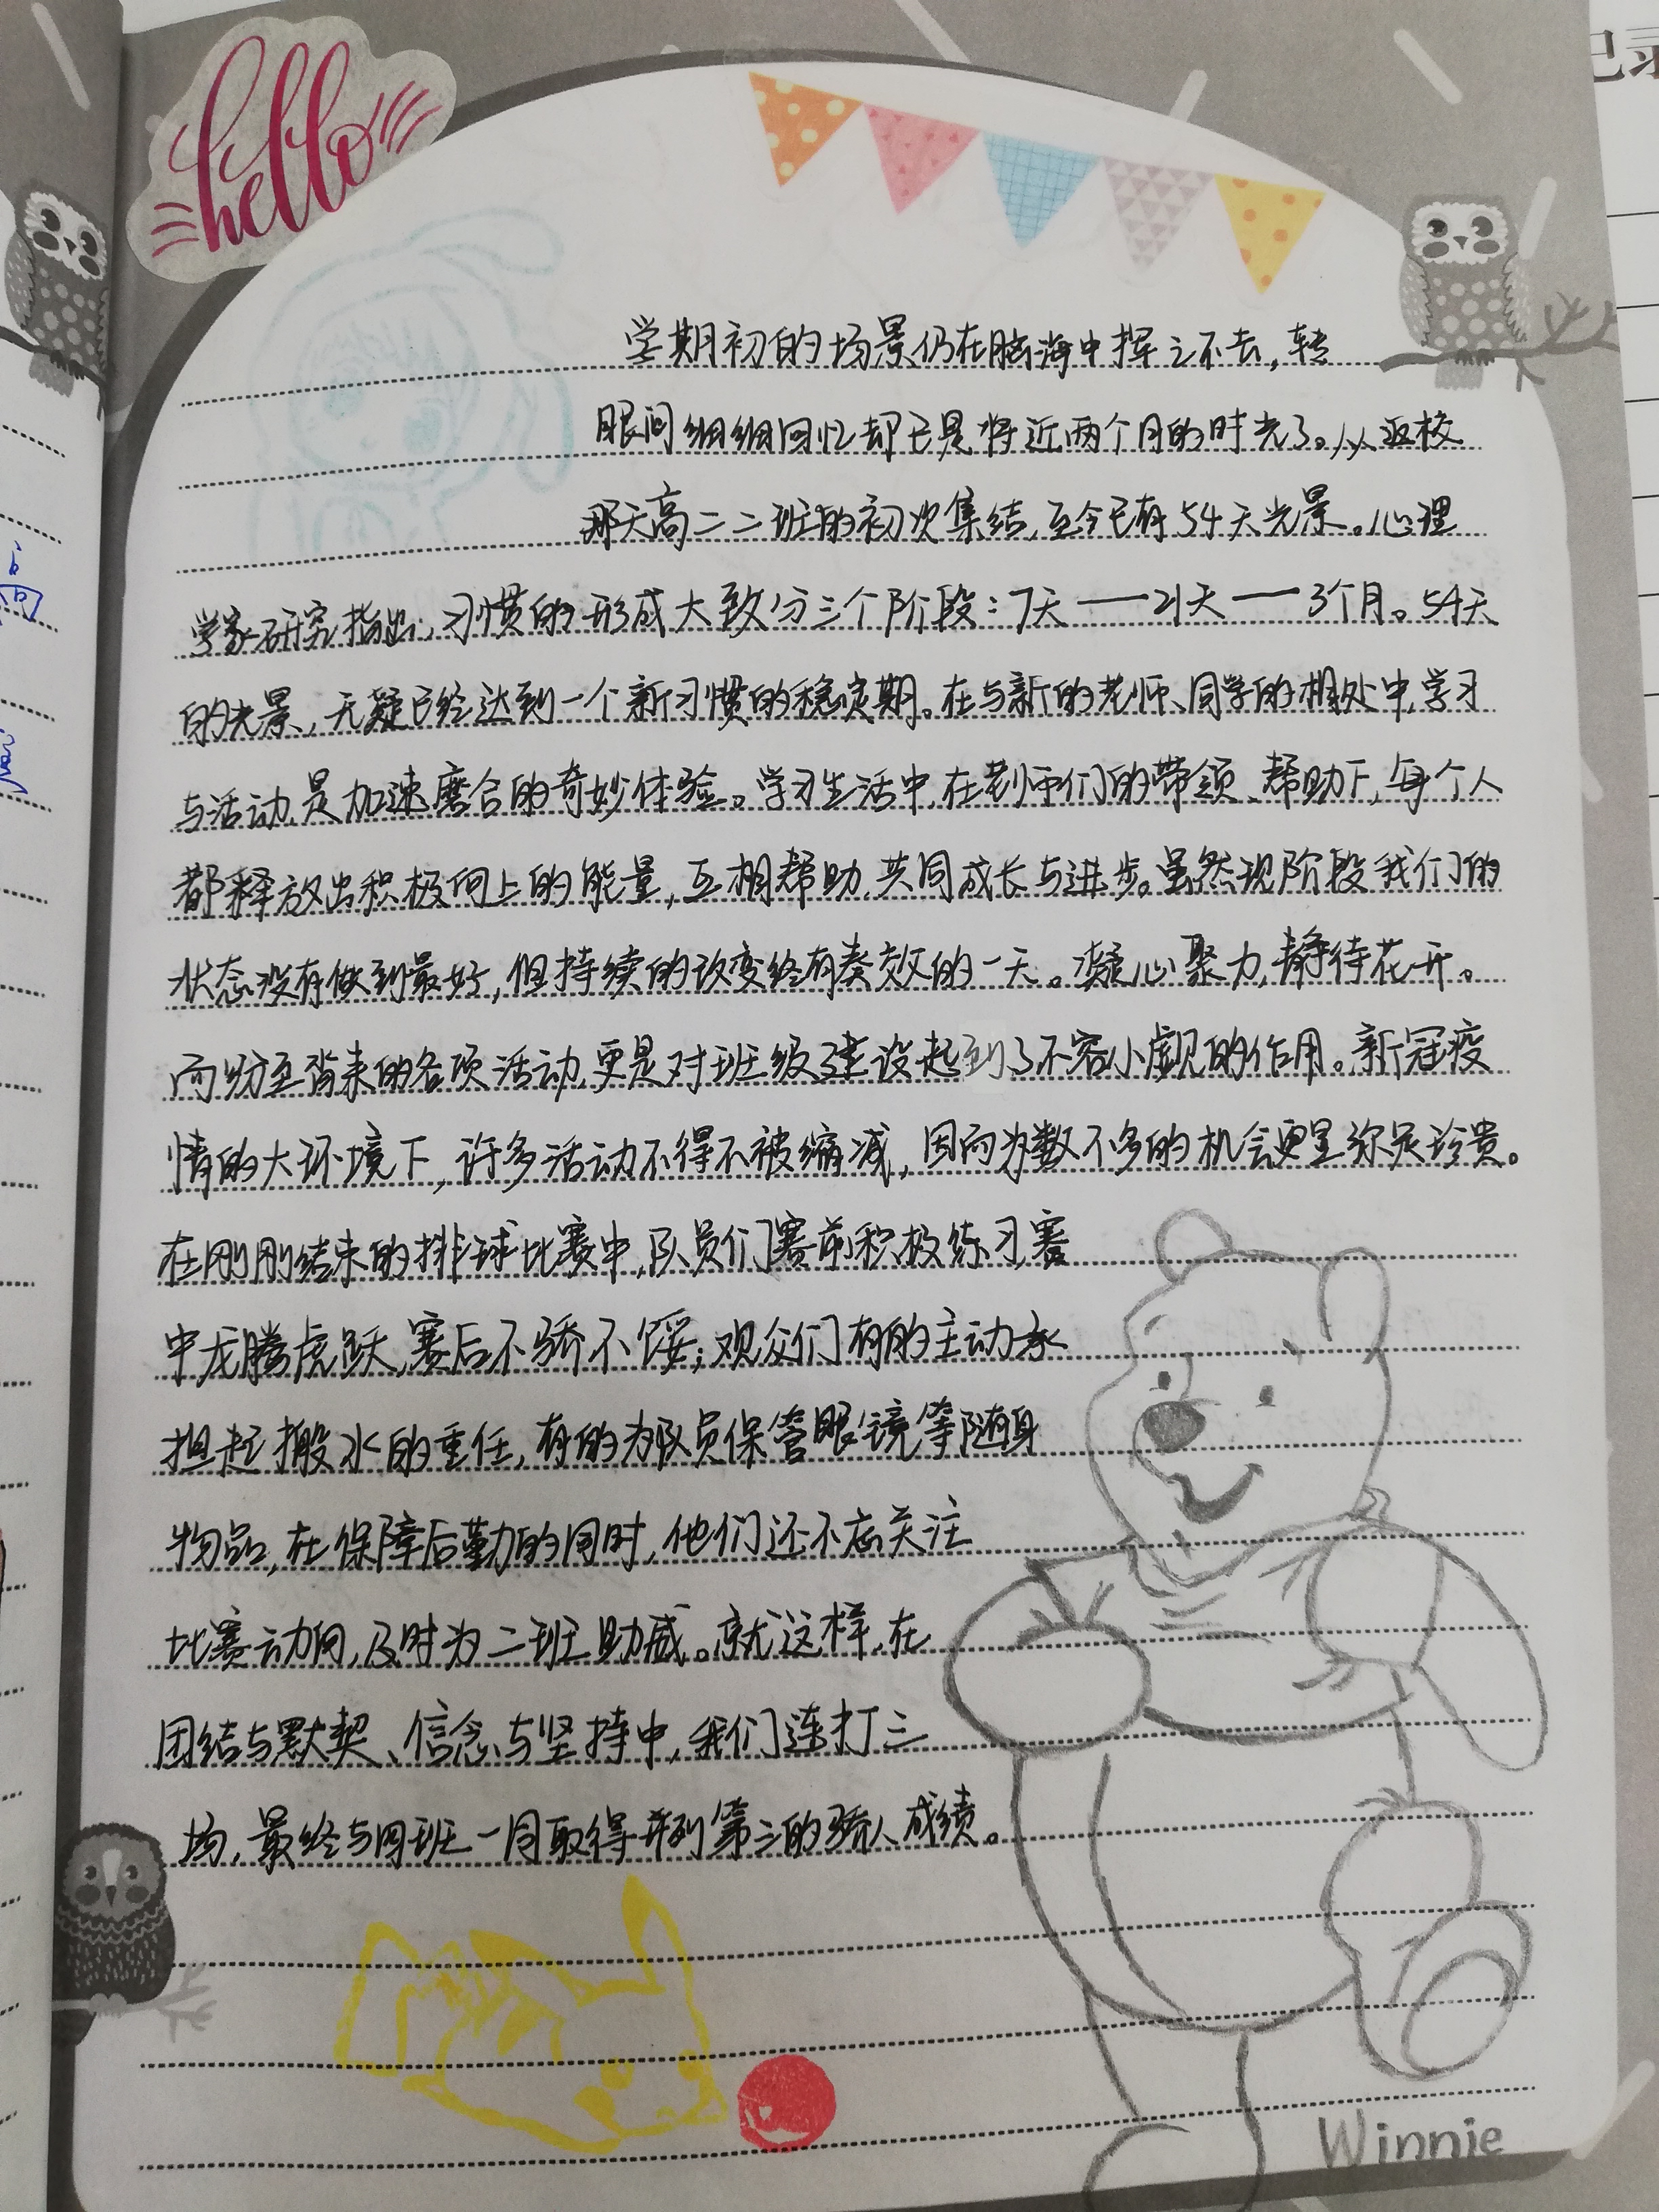 hello
记录
学期初的场景仍在脑海中挥之不去，转
眼间细细回忆却已是将近两个月的时光了。从返校
那天高二二班的初次集结，至今已有54天光景。心理
学家研究指出，习惯的形成大致分三个阶段：7天——21天——3个月。54天
的光景，无疑已经达到一个新习惯的稳定期。在与新的老师、同学的相处中，学习
与活动，是加速磨合的奇妙体验。学习生活中，在老师们的带领、帮助下，每个人
都释放出积极向上的能量，互相帮助，共同成长与进步。虽然现阶段我们的
状态没有做到最好，但持续的改变终有奏效的一天。凝心聚力，静待花开。
而纷至沓来的各项活动，更是对班级建设起到了不容小觑的作用。新冠疫
情的大环境下，许多活动不得不被缩减，因而为数不多的机会更显弥足珍贵。
在刚刚结束的排球比赛中，队员们赛前积极练习，赛
中龙腾虎跃，赛后不骄不馁；观众们有的主动承
担起搬水的重任，有的为队员保管眼镜等随身
物品，在保障后勤的同时，他们还不忘关注
比赛动向，及时为二班助威。就这样，在
团结与默契、信念与坚持中，我们连打三
场，最终与四班一同取得并列第三的骄人成绩。
Winnie